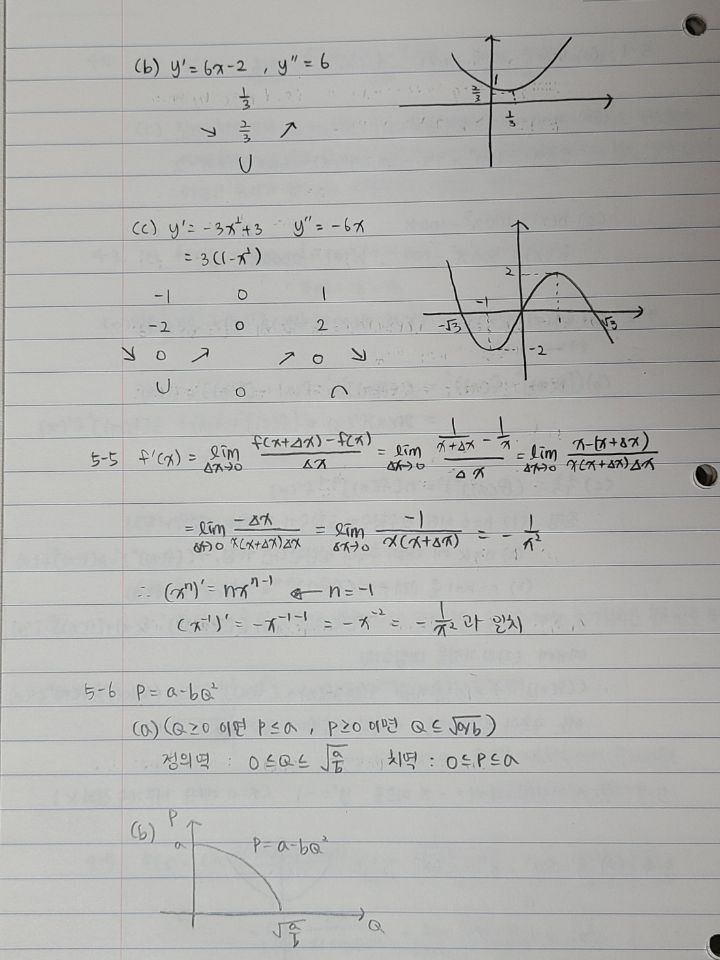 (b) y' = 6x-2 , y" = 6
1/3
↘ 2/3 ↗
∪
1
2/3
1/3
(c) y' = -3x²+3 y" = -6x
= 3(1-x²)
-1 0 1
-2 0 2
↘ 0 ↗ ↗ 0 ↘
∪ 0 ∩
2
-1
-√3 1 √3
-2
5-5 f'(x) = lim_{Δx→0} (f(x+Δx)-f(x))/Δx = lim_{Δx→0} (1/(x+Δx) - 1/x)/Δx = lim_{Δx→0} (x-(x+Δx))/(x(x+Δx)Δx)
= lim_{Δx→0} -Δx/(x(x+Δx)Δx) = lim_{Δx→0} -1/(x(x+Δx)) = - 1/x²
∴ (xⁿ)' = nxⁿ⁻¹ ← n = -1
(x⁻¹)' = -x⁻¹⁻¹ = -x⁻² = - 1/x² 과 일치 ∴
5-6 P = a-bQ²
(a) (Q≥0 이면 P≤a , P≥0 이면 Q≤√(a/b))
정의역 : 0≤Q≤√(a/b) 치역 : 0≤P≤a
(b) P
a P = a-bQ²
√(a/b) Q